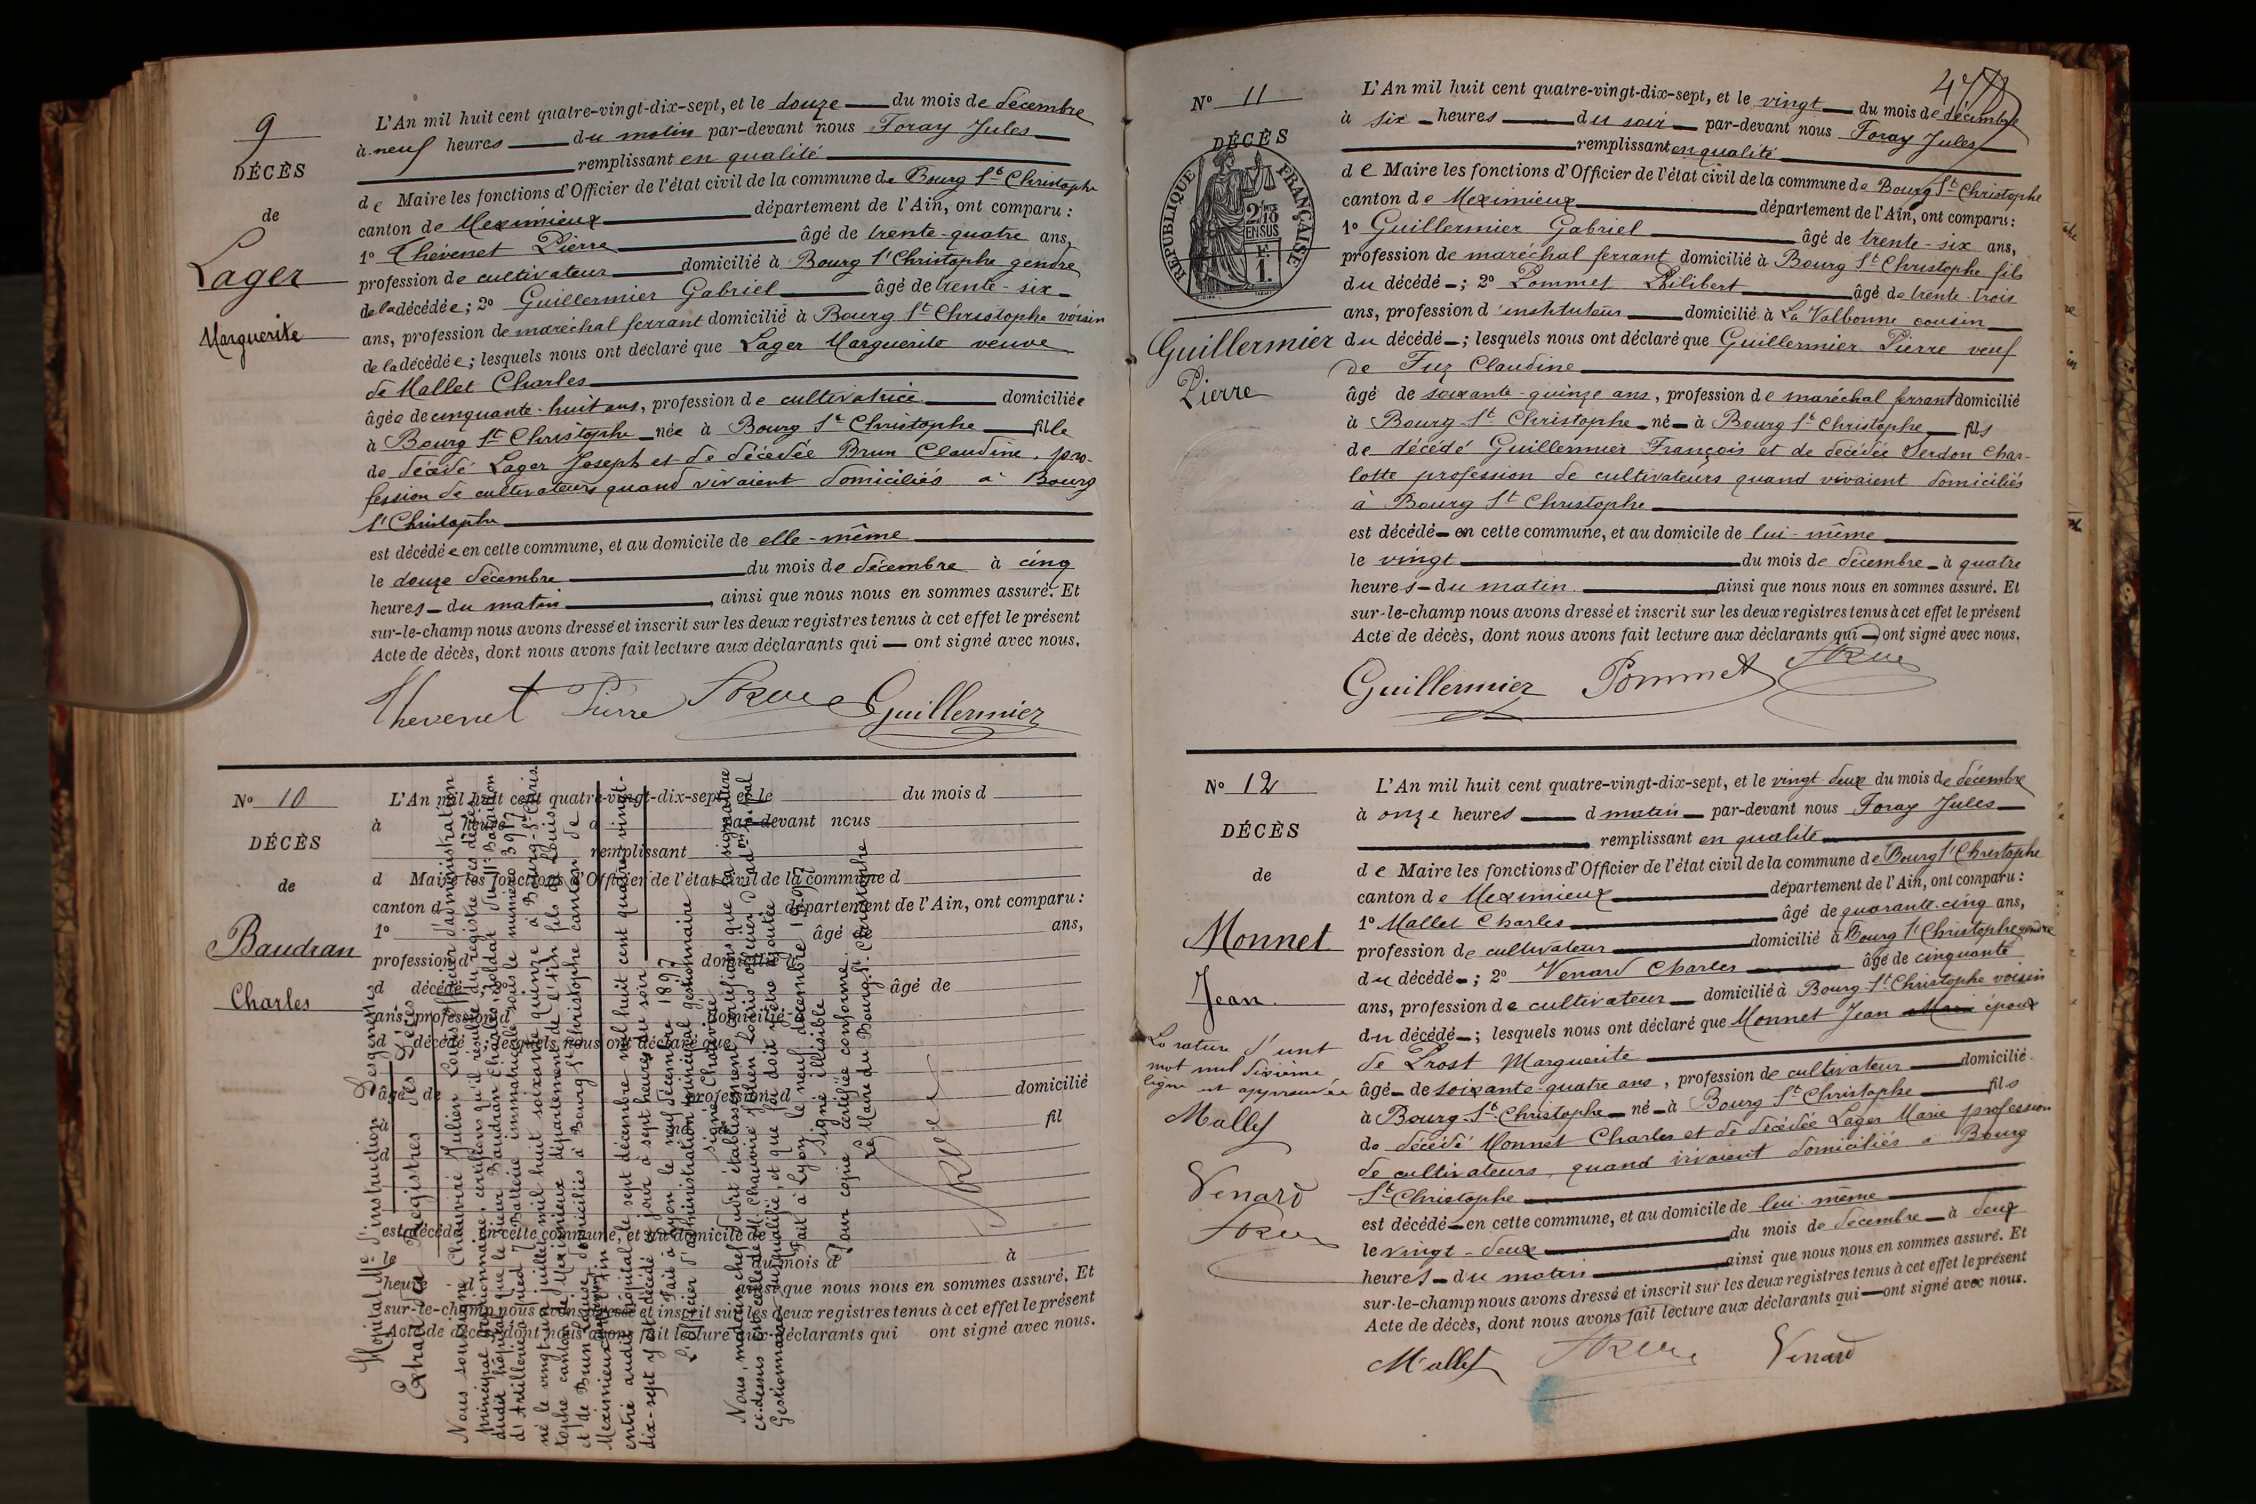 9
DÉCÈS
de
Lager
Marguerite
L'An mil huit cent quatre-vingt-dix-sept, et le douze du mois de décembre
à neuf heures du matin par-devant nous Foray Jules
remplissant en qualité
de Maire les fonctions d'Officier de l'état civil de la commune de Bourg St Christophe
canton de Meximieux département de l'Ain, ont comparu :
1º Thévenet Pierre âgé de trente-quatre ans,
profession de cultivateur domicilié à Bourg St Christophe gendre
de la décédée ; 2º Guillermier Gabriel âgé de trente-six
ans, profession de maréchal ferrant domicilié à Bourg St Christophe voisin
de la décédée ; lesquels nous ont déclaré que Lager Marguerite veuve
de Mallet Charles
âgée de cinquante-huit ans, profession de cultivatrice domiciliée
à Bourg St Christophe née à Bourg St Christophe fille
de décédé Lager Joseph et de décédée Brun Claudine, pro-
fession de cultivateurs quand vivaient domiciliés à Bourg
St Christophe
est décédée en cette commune, et au domicile de elle-même
le douze décembre du mois de décembre à cinq
heures du matin, ainsi que nous nous en sommes assuré. Et
sur-le-champ nous avons dressé et inscrit sur les deux registres tenus à cet effet le présent
Acte de décès, dont nous avons fait lecture aux déclarants qui ont signé avec nous.
Thevenet Pierre Guillermier
Nº 10
DÉCÈS
de
Baudran
Charles
L'An mil huit cent quatre-vingt-dix-sept, et le du mois d
à heure d par-devant nous
remplissant
d Maire les fonctions d'Officier de l'état civil de la commune d
canton d département de l'Ain, ont comparu :
1º âgé de ans,
profession d domicilié à
d décédé ; 2º âgé de
ans, profession d domicilié
d décédé ; lesquels nous ont déclaré que
âgé de profession d domicilié
à né à fil
d
est décédé en cette commune, et au domicile de
le du mois d à
heure d ainsi que nous nous en sommes assuré. Et
sur-le-champ nous avons dressé et inscrit sur les deux registres tenus à cet effet le présent
Acte de décès, dont nous avons fait lecture aux déclarants qui ont signé avec nous.
Hôpital Mre d'instruction Desgenettes
Extrait des Registres des Décès
Nous soussigné Chauviré Julien Louis officier d'administration
principal gestionnaire, certifions qu'il résulte du registre des décès
dudit hôpital que le sieur Baudran Charles, soldat du 11e Bataillon
d'Artillerie à pied 7e Batterie immatriculé sous le numéro 3917
né le vingt-un juillet mil huit soixante quinze à Bourg-St-Chris
tophe canton de Meximieux département de l'Ain fils de Louis
et de Brun Louise, domiciliés à Bourg St Christophe canton de
Meximieux (Ain)
entré audit hôpital le sept décembre mil huit cent quatre vingt-
dix-sept y est décédé ce jour à sept heures du soir
Fait à Lyon le neuf décembre 1897
L'officier d'administration principal gestionnaire
signé Chauviré
Nous, médecin chef dudit établissement certifions que la signature
ci-dessus est celle de M. Chauviré Julien Louis officier d'adon principal
Gestionnaire susqualifié, et que foi doit y être ajoutée
Fait à Lyon le neuf décembre 1897
Signé illisible
Pour copie certifiée conforme
Le Maire du Bourg St Christophe
Nº 11
DÉCÈS
RÉPUBLIQUE FRANÇAISE
2/10
EN SUS
F.
1.
Guillermier
Pierre
L'An mil huit cent quatre-vingt-dix-sept, et le vingt du mois de décembre
à six heures du soir par-devant nous Foray Jules
remplissant en qualité
de Maire les fonctions d'Officier de l'état civil de la commune de Bourg St Christophe
canton de Meximieux département de l'Ain, ont comparu :
1º Guillermier Gabriel âgé de trente-six ans,
profession de maréchal ferrant domicilié à Bourg St Christophe fils
du décédé ; 2º Pommet Philibert âgé de trente-trois
ans, profession d'instituteur domicilié à La Valbonne cousin
du décédé ; lesquels nous ont déclaré que Guillermier Pierre veuf
de Fuz Claudine
âgé de soixante-quinze ans, profession de maréchal ferrant domicilié
à Bourg St Christophe né à Bourg St Christophe fils
de décédé Guillermier François et de décédée Serdon Char-
lotte profession de cultivateurs quand vivaient domiciliés
à Bourg St Christophe
est décédé en cette commune, et au domicile de lui-même
le vingt du mois de décembre à quatre
heures du matin ainsi que nous nous en sommes assuré. Et
sur-le-champ nous avons dressé et inscrit sur les deux registres tenus à cet effet le présent
Acte de décès, dont nous avons fait lecture aux déclarants qui ont signé avec nous.
Guillermier Pommet
Nº 12
DÉCÈS
de
Monnet
Jean
La rature d'un
mot nul dixième
ligne est approuvée
Mallet
Venard
L'An mil huit cent quatre-vingt-dix-sept, et le vingt deux du mois de décembre
à onze heures d matin par-devant nous Foray Jules
remplissant en qualité
de Maire les fonctions d'Officier de l'état civil de la commune de Bourg St Christophe
canton de Meximieux département de l'Ain, ont comparu :
1º Mallet Charles âgé de quarante-cinq ans,
profession de cultivateur domicilié à Bourg St Christophe gendre
du décédé ; 2º Venard Charles âgé de cinquante
ans, profession de cultivateur domicilié à Bourg St Christophe voisin
du décédé ; lesquels nous ont déclaré que Monnet Jean époux
de Prost Marguerite
âgé de soixante-quatre ans, profession de cultivateur domicilié
à Bourg St Christophe né à Bourg St Christophe fils
de décédé Monnet Charles et de décédée Lager Marie profession
de cultivateurs, quand vivaient domiciliés à Bourg
St Christophe
est décédé en cette commune, et au domicile de lui-même
le vingt-deux du mois de décembre à deux
heures du matin ainsi que nous nous en sommes assuré. Et
sur-le-champ nous avons dressé et inscrit sur les deux registres tenus à cet effet le présent
Acte de décès, dont nous avons fait lecture aux déclarants qui ont signé avec nous.
Mallet Venard